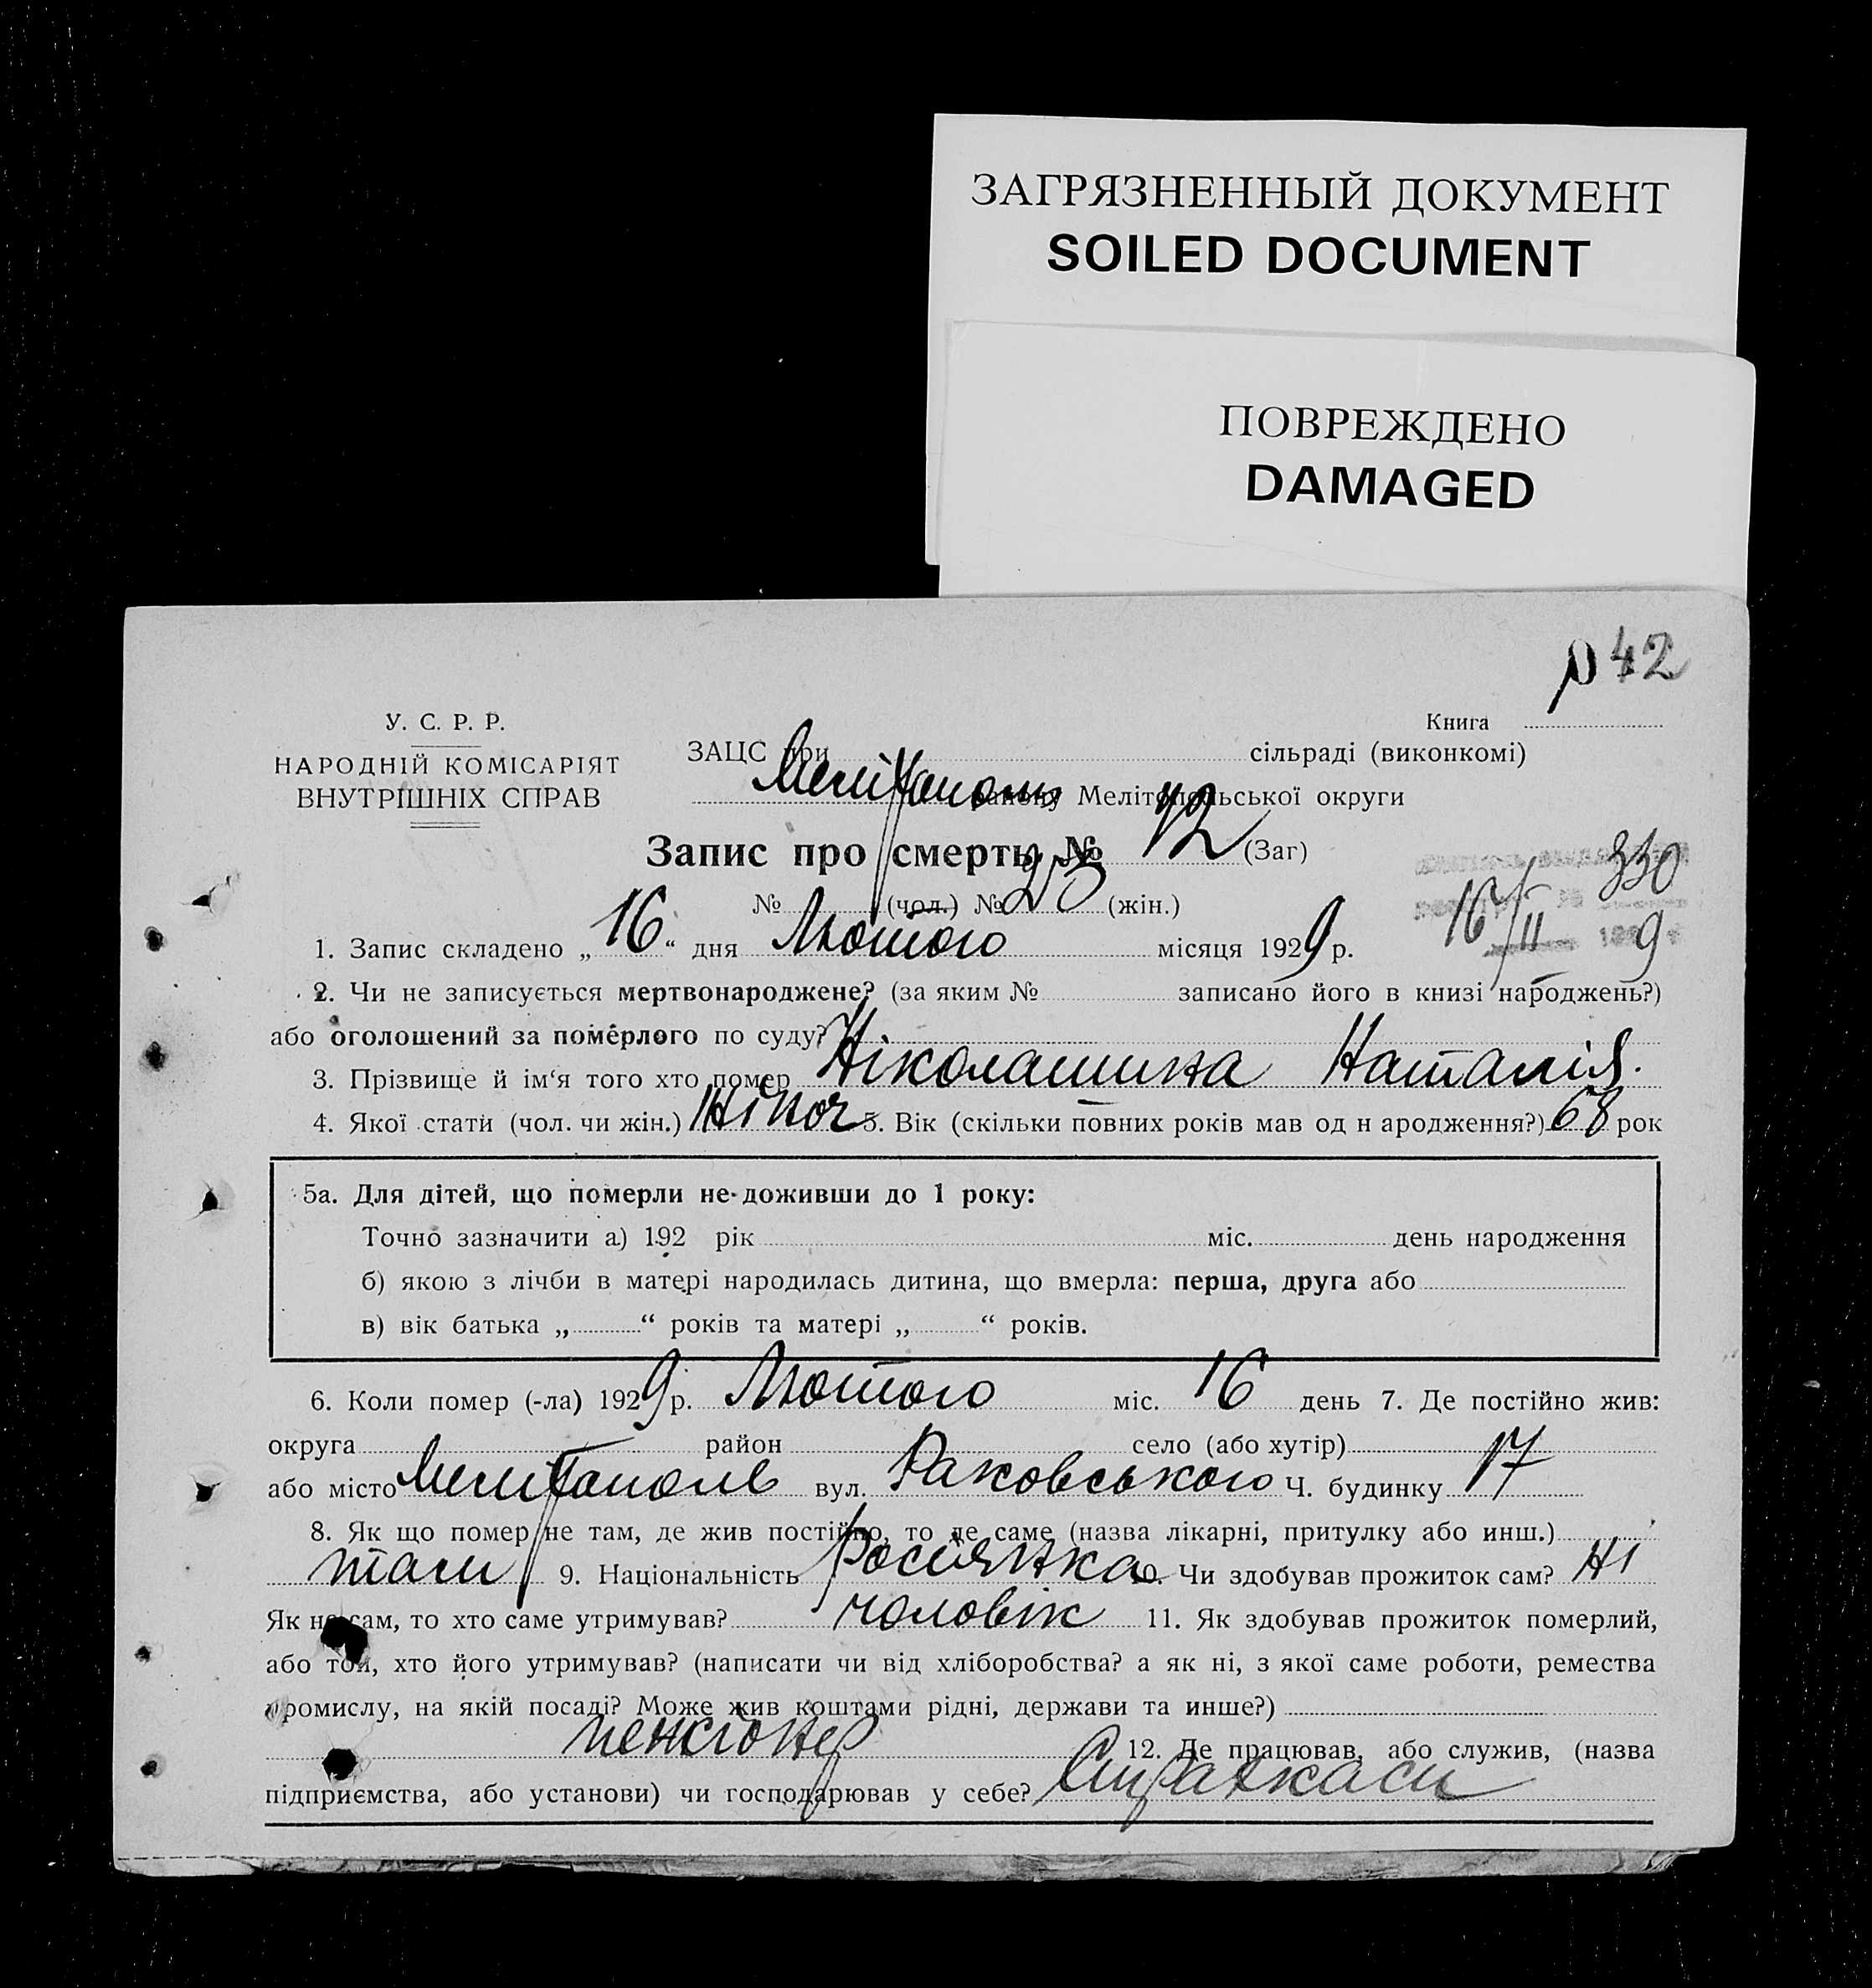 ЗАГРЯЗНЕННЫЙ ДОКУМЕНТ
SOILED DOCUMENT
ПОВРЕЖДЕНО
DAMAGED
42
У. С. Р. Р.
НАРОДНІЙ КОМІСАРІЯТ
ВНУТРІШНІХ СПРАВ
Книга
ЗАЦС при сільраді (виконкомі)
району Мелітопольської округи
Запис про смерть № 72 (Заг)
№ (чол.) № 23 (жін.)
330
16/II 9
1. Запис складено „16“ дня Лютого місяця 1929 р.
2. Чи не записується мертвонароджене? (за яким № записано його в книзі народжень?)
або оголошений за померлого по суду?
3. Прізвище й ім‘я того хто помер Ніколашина Наталія.
4. Якої стати (чол. чи жін.) Жіноч 5. Вік (скільки повних років мав од н ародження?) 68 рок
5а. Для дітей, що померли не-доживши до 1 року:
Точно зазначити а) 192 рік міс. день народження
б) якою з лічби в матері народилась дитина, що вмерла: перша, друга або
в) вік батька „ “ років та матері „ “ років.
6. Коли помер (-ла) 1929 р. Лютого міс. 16 день 7. Де постійно жив:
округа район село (або хутір)
або місто Мелітополь вул. Раковського Ч. будинку 17
8. Як що помер не там, де жив постійно, то де саме (назва лікарні, притулку або инш.)
там 9. Національність Росіянка 10. Чи здобував прожиток сам? Ні
Як не сам, то хто саме утримував? чоловік 11. Як здобував прожиток померлий,
або той, хто його утримував? (написати чи від хліборобства? а як ні, з якої саме роботи, ремества
промислу, на якій посаді? Може жив коштами рідні, держави та инше?)
пенсіонер 12. Де працював, або служив, (назва
підприємства, або установи) чи господарював у себе? Страхкаси